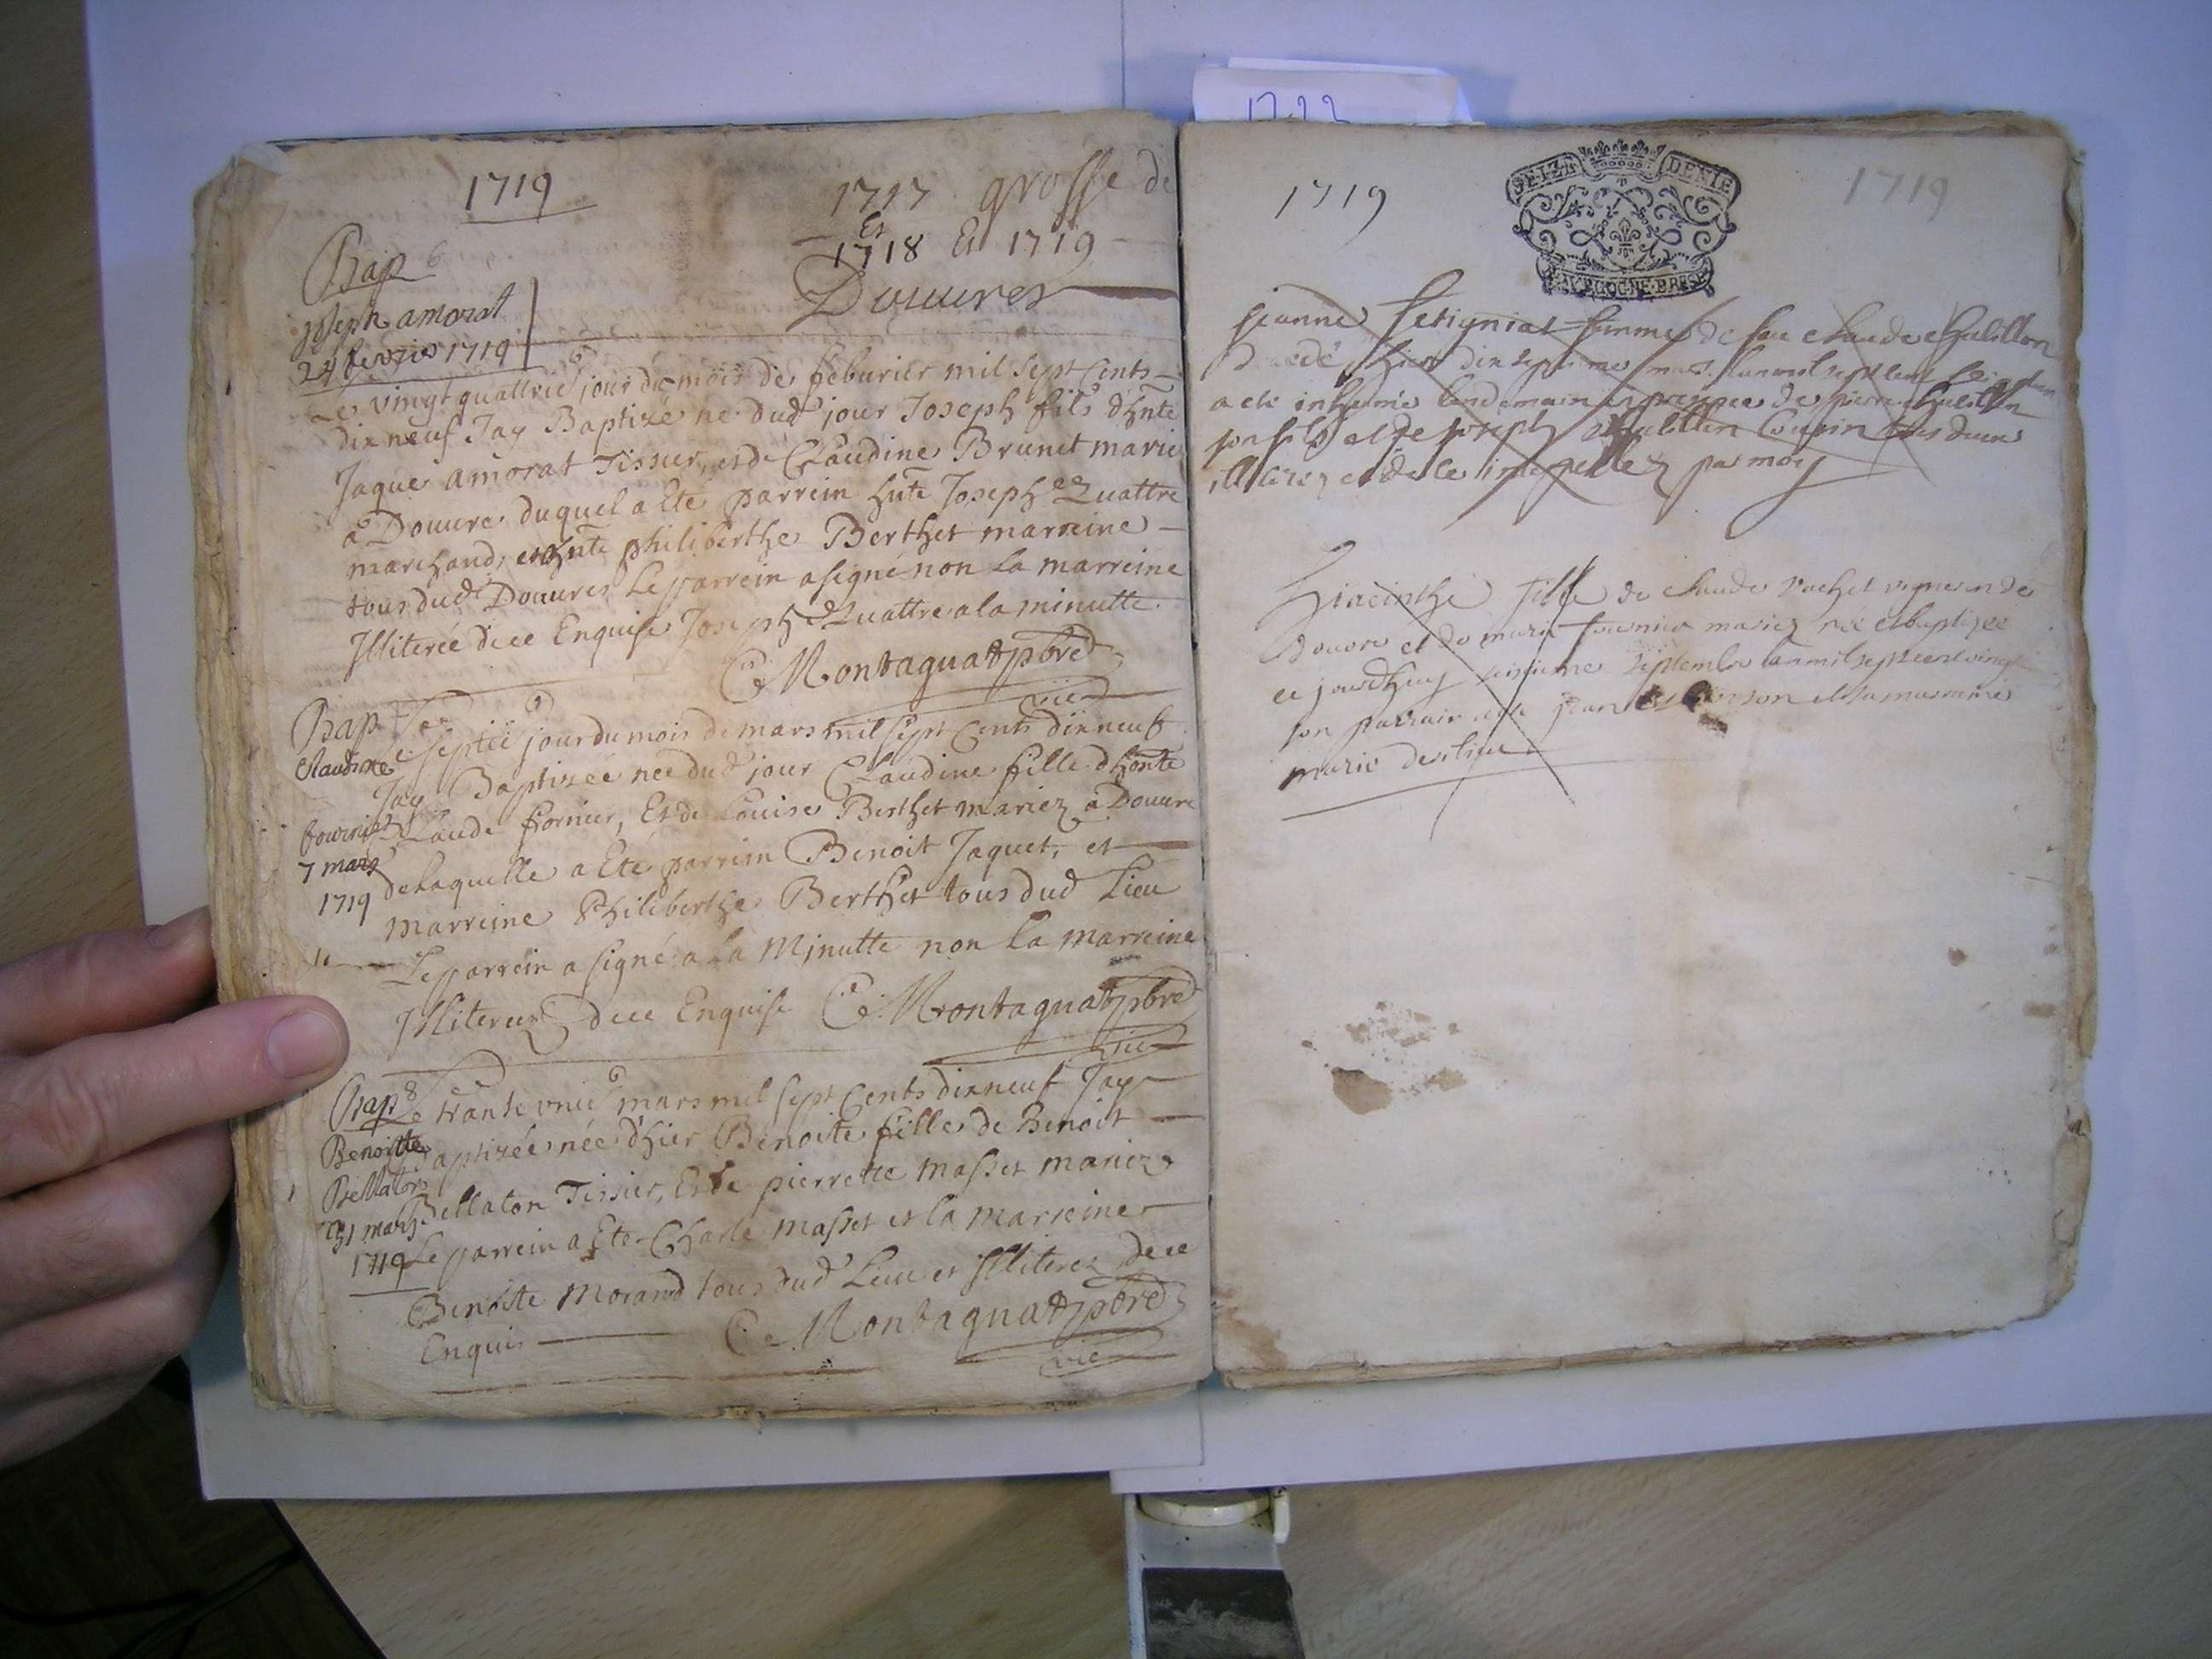 1719
1717 grosse de
Et
1718 Et 1719
Douures
Bap
Joseph amorat
24 fevrier 1719
Le vingt quattrie jour du mois de feburier mil sept cents
dix neuf Jay Baptizé né dud jour Joseph fils d'hnte
Jaque amorat Tissier, et de Claudine Brunet mariez
a Douure duquel a Eté parrein hnte Joseph Quattre
marchand, et hnte philiberthe Berthet marreine
tous dud Douures Le parrein a signé non La marreine
Illiterée de ce Enquise Joseph Quattre a la minutte
C. Montagnat pbre
vic
Bap
Claudine
fournier
7 mars
1719
Le septie jour du mois de mars mil sept cents dix neuf
Jay Baptizée née dud jour Claudine fille d'honte
Claude fornier, Et de Louise Berthet mariez a Douure
de Laquelle a Eté parrein Benoit Jaquet, et
marreine Philiberthe Berthet tous dud Lieu
Le parrein a signé a La Minutte non La marreine
Illiterée de ce Enquise C. Montagnat pbre
vic
Bap
Benoitte
Bellaton
31 mars
1719
Le trante vnie mars mil sept Cents dix neuf Jay
Baptizée née d'hier Benoite fille de Benoit
Bellaton Tissier, Et de pierrette masset mariez
Le parrein a Eté Charle masset et la marreine
Benoite Morand tous dud Lieu et Illiterez de ce
Enquis C. Montagnat pbre
vic
1722
1719
SEIZE DENIE
1719
BOURGOGNE BRESSE
jeanne femme de feu claude chatillon
hier dix septieme
a eté inhumée lendemain en presence de pierre chatillon
son fils et de joseph chatillon cousin
illiterez et de ce interpellez par moy
hiacinthe fille de claude vachet vigneron de
douvre et de marie fournier mariez née et baptizée
ce jourdhuy septembre lan mil sept cent vingt
son parrain a été jean et sa marraine
marie